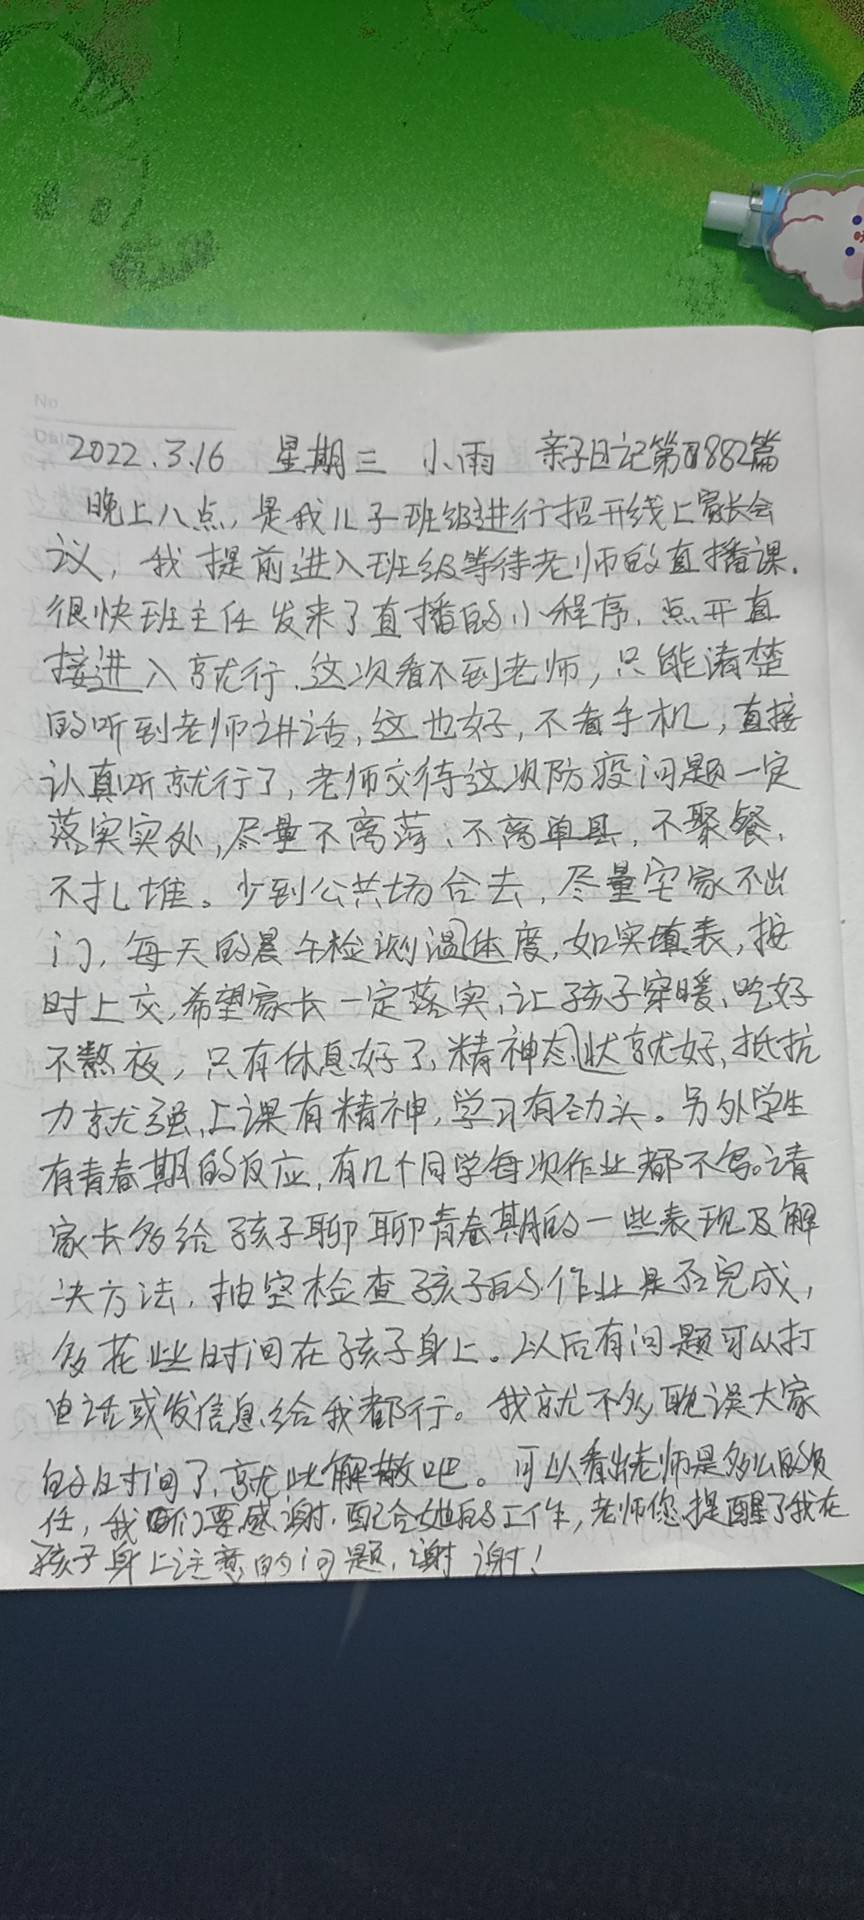 No
Date
2022.3.16 星期三 小雨 亲子日记第882篇
晚上八点，是我儿子班级进行招开线上家长会
议，我提前进入班级等待老师的直播课.
很快班主任发来了直播的小程序，点开直
接进入就行.这次看不到老师，只能清楚
的听到老师讲话，这也好，不看手机，直接
认真听就行了，老师交待这次防疫问题一定
落实实处，尽量不离菏、不离单县，不聚餐，
不扎堆。少到公共场合去，尽量宅家不出
门，每天的晨午检测温体度，如实填表，按
时上交，希望家长一定落实，让孩子穿暖、吃好
不熬夜，只有休息好了，精神态状就好，抵抗
力就强，上课有精神，学习有劲头。另外学生
有青春期的反应，有几个同学每次作业都不写。请
家长多给孩子聊聊青春期的一些表现及解
决方法，抽空检查孩子的作业是否完成，
多花些时间在孩子身上。以后有问题可以打
电话或发信息给我都行。我就不多耽误大家
的时间了，就此解散吧。可以看出老师是多么的负
任，我们要感谢，配合她的工作，老师您提醒了我在
孩子身上注意的问题，谢谢！